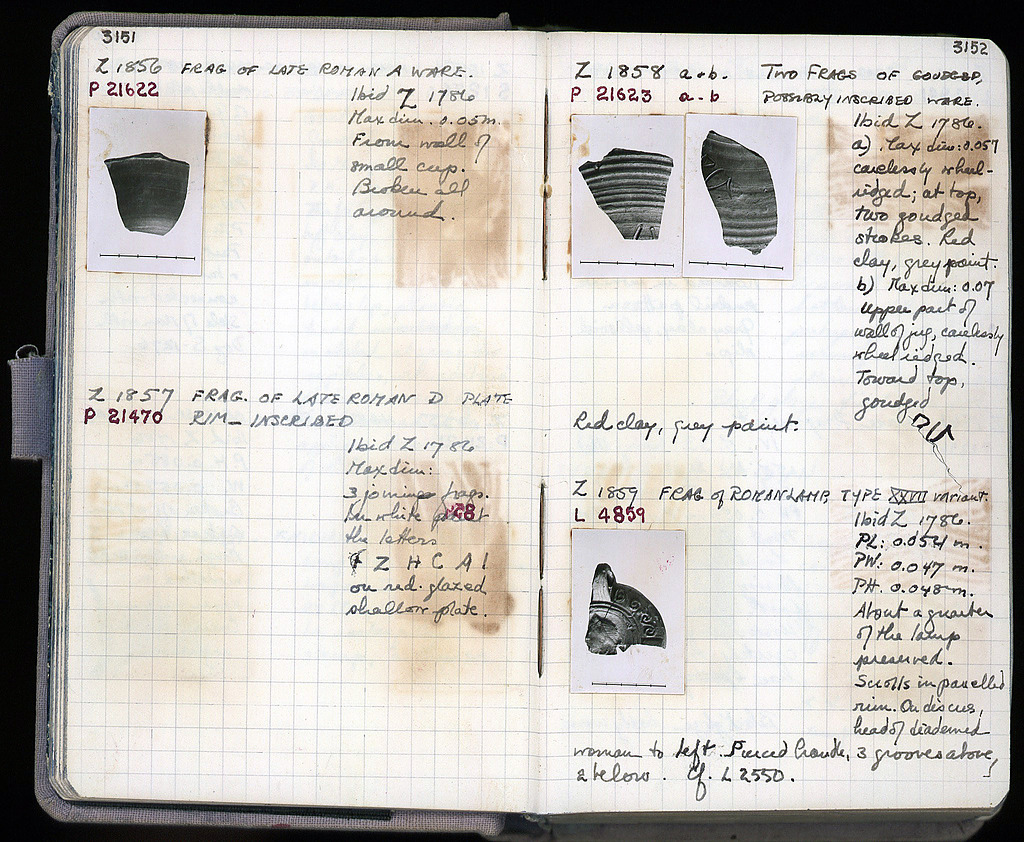 3151
Z 1856 FRAG OF LATE ROMAN A WARE.
P 21622
Ibid Z 1786
Max dim. 0.05m.
From wall of
small cup.
Broken all
around.
Z 1857 FRAG. OF LATE ROMAN D PLATE
P 21470 RIM - INSCRIBED
Ibid Z 1786
Max dim:
3 joining frags.
In white paint
the letters
Z H C A I
on red-glazed
shallow plate.
3152
Z 1858 a+b. TWO FRAGS OF GOUDGED,
P 21623 a-b POSSIBLY INSCRIBED WARE.
Ibid Z 1786.
a) Max dim: 0.057
carelessly wheel-
ridged; at top,
two goudged
strokes. Red
clay, grey paint.
b) Max dim: 0.07
upper part of
wall of jug, carelessly
wheel ridged.
Toward top,
goudged
Red clay, grey paint.
Z 1859 FRAG of ROMAN LAMP, TYPE XXVII variant.
L 4859
Ibid Z 1786.
PL: 0.054 m.
PW: 0.047 m.
PH: 0.048 m.
About a quarter
of the lamp
preserved.
Scrolls in panelled
rim. On discus,
head of diademed
woman to left. Pierced handle, 3 grooves above,
2 below. Cf. L 2550.